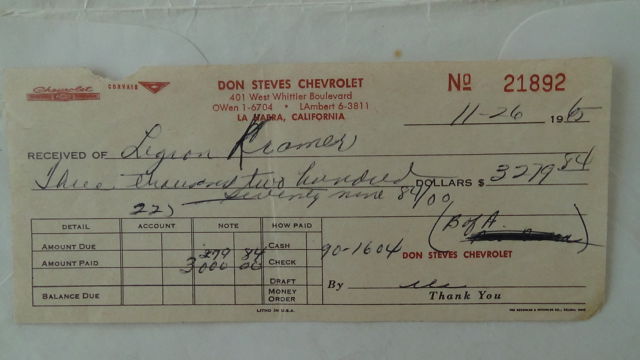 Chevrolet CORVAIR
DON STEVES CHEVROLET
401 West Whittier Boulevard
OWen 1-6704 • LAmbert 6-3811
LA HABRA, CALIFORNIA
No 21892
11-26 1965
RECEIVED OF Legion Kramer
Three thousand two hundred
seventy nine 84/00 DOLLARS $ 3279 84
22)
(B of A.
DETAIL ACCOUNT NOTE HOW PAID
AMOUNT DUE 279 84 CASH 90-1604
AMOUNT PAID 3000 00 CHECK
DON STEVES CHEVROLET
DRAFT
BALANCE DUE MONEY ORDER
By
Thank You
LITHO IN U.S.A.